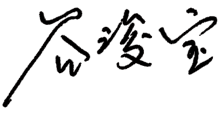 谷浚宝